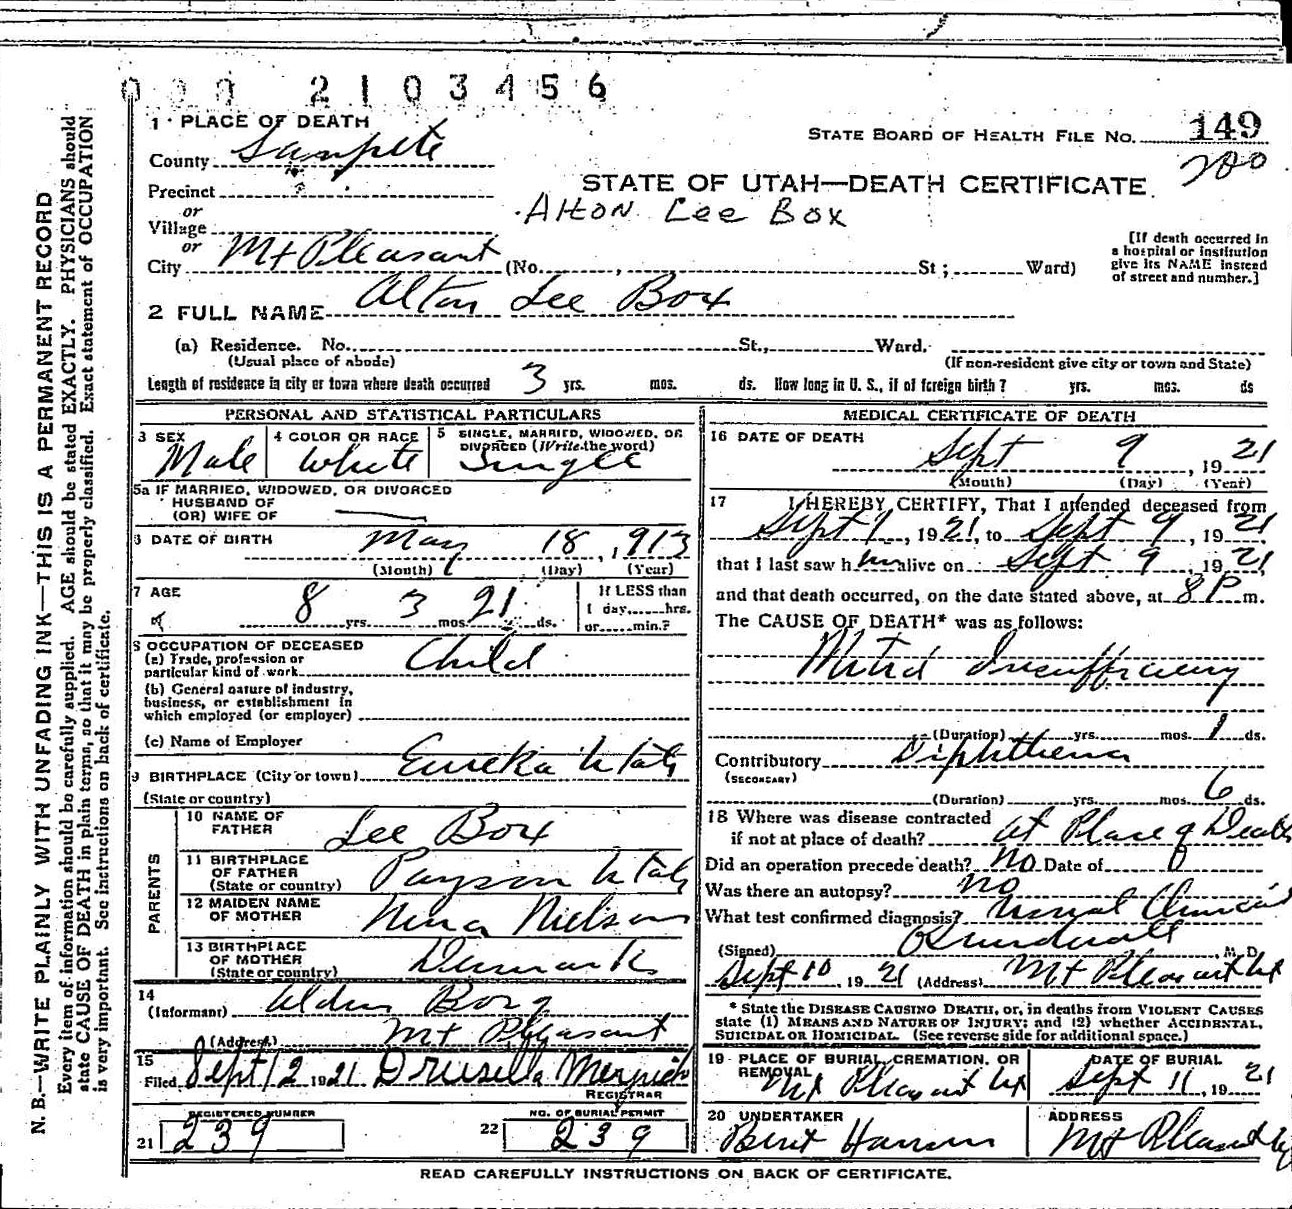 000 2103456
1 PLACE OF DEATH
STATE BOARD OF HEALTH FILE NO. 149
County Sanpete
200
Precinct
STATE OF UTAH—DEATH CERTIFICATE.
or
Alton Lee Box
Village
or
[If death occurred in a hospital or institution give its NAME instead of street and number.]
City Mt Pleasant (No. , St; Ward)
2 FULL NAME Alton Lee Box
(a) Residence. No. St., Ward.
(Usual place of abode) (If non-resident give city or town and State)
Length of residence in city or town where death occurred 3 yrs. mos. ds. How long in U. S., if of foreign birth? yrs. mos. ds
PERSONAL AND STATISTICAL PARTICULARS
3 SEX Male
4 COLOR OR RACE White
5 SINGLE, MARRIED, WIDOWED, OR DIVORCED (Write the word) Single
5a IF MARRIED, WIDOWED, OR DIVORCED
HUSBAND OF
(OR) WIFE OF
6 DATE OF BIRTH May 18, 1913
(Month) (Day) (Year)
7 AGE 8 yrs. 3 mos. 21 ds.
If LESS than
1 day......hrs.
or......min.?
8 OCCUPATION OF DECEASED
(a) Trade, profession or
particular kind of work Child
(b) General nature of industry,
business, or establishment in
which employed (or employer)
(c) Name of Employer
9 BIRTHPLACE (City or town) Eureka Utah
(State or country)
PARENTS
10 NAME OF
FATHER Lee Box
11 BIRTHPLACE
OF FATHER
(State or country) Payson Utah
12 MAIDEN NAME
OF MOTHER Nina Nielson
13 BIRTHPLACE
OF MOTHER
(State or country) Denmark
14
(Informant) Alden Borg
(Address) Mt Pleasant
15
Filed Sept 12 1921 Drusella
REGISTRAR
REGISTERED NUMBER
21 239
NO. OF BURIAL PERMIT
22 239
MEDICAL CERTIFICATE OF DEATH
16 DATE OF DEATH
Sept 9, 1921
(Month) (Day) (Year)
17 I HEREBY CERTIFY, That I attended deceased from
Sept 9, 1921, to Sept 9, 1921,
that I last saw him alive on Sept 9, 1921,
and that death occurred, on the date stated above, at 8 P m.
The CAUSE OF DEATH* was as follows:
Mitral Insufficiency
(Duration) yrs. mos. 1 ds.
Contributory Diphtheria
(SECONDARY)
(Duration) yrs. mos. 6 ds.
18 Where was disease contracted
if not at place of death? At Place of Death
Did an operation precede death? No Date of 0
Was there an autopsy? No
What test confirmed diagnosis? Usual Clinical
(Signed) , M. D.
Sept 10, 1921 (Address) Mt Pleasant Ut
* State the DISEASE CAUSING DEATH, or, in deaths from VIOLENT CAUSES
state (1) MEANS AND NATURE OF INJURY; and (2) whether ACCIDENTAL,
SUICIDAL OR HOMICIDAL. (See reverse side for additional space.)
19 PLACE OF BURIAL, CREMATION, OR
REMOVAL Mt Pleasant Ut
DATE OF BURIAL
Sept 11, 1921
20 UNDERTAKER
Bent Hansen
ADDRESS
Mt Pleasant Ut
READ CAREFULLY INSTRUCTIONS ON BACK OF CERTIFICATE.
N. B.—WRITE PLAINLY WITH UNFADING INK—THIS IS A PERMANENT RECORD
Every item of information should be carefully supplied. AGE should be stated EXACTLY. PHYSICIANS should
state CAUSE OF DEATH in plain terms, so that it may be properly classified. Exact statement of OCCUPATION
is very important. See instructions on back of certificate.